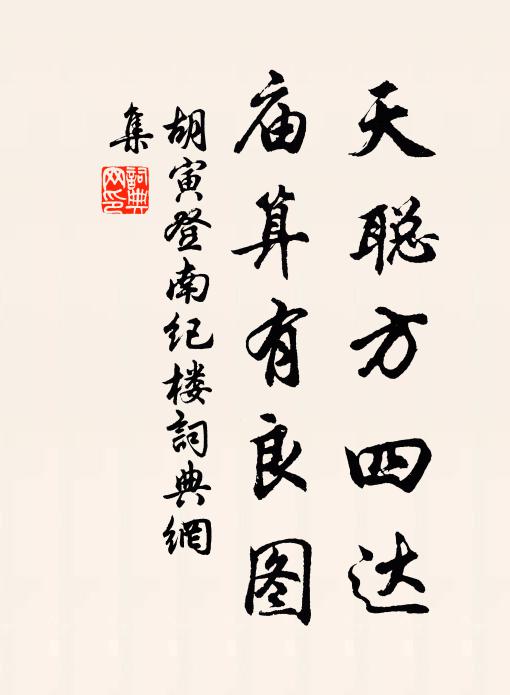 天聪方四达
庙算有良图
胡寅登南纪楼词典網
集
詞典
网印